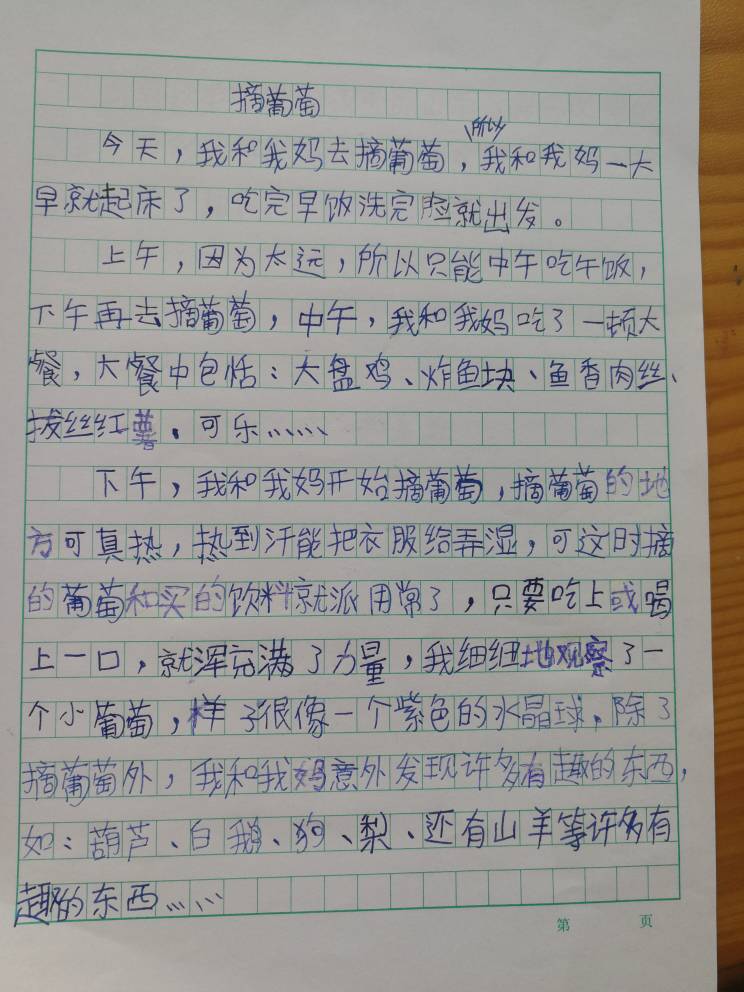 摘葡萄
所以
今天，我和我妈去摘葡萄，我和我妈一大
早就起床了，吃完早饭洗完脸就出发。
上午，因为太远，所以只能中午吃午饭，
下午再去摘葡萄，中午，我和我妈吃了一顿大
餐，大餐中包恬：大盘鸡、炸鱼块、鱼香肉丝、
拔丝红薯。可乐……
下午，我和我妈开始摘葡萄，摘葡萄的地
方可真热，热到汗能把衣服给弄湿，可这时摘
的葡萄和买的饮料就派用常了，只要吃上或喝
上一口，就浑充满了力量，我细细地观察了一
个小葡萄，样子很像一个紫色的水晶球，除了
摘葡萄外，我和我妈意外发现许多有趣的东西，
如：葫芦、白鹅、狗、梨、还有山羊等许多有
趣的东西……
第 页